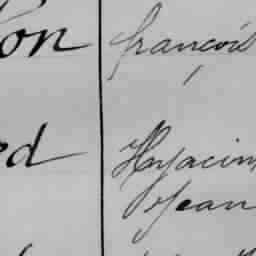 on françois
ed Hyacin
Jean